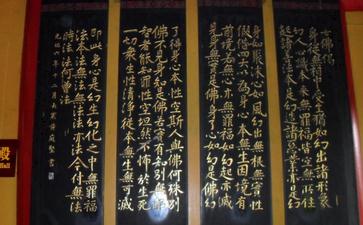 古佛偈
身從無相中受生猶如幻出諸形象
幻人心識本來無罪福皆空無所住
起諸善法本是幻造諸惡業亦是幻
身如聚沫心如風幻出無根無實性
假借四大以為身心本無生因境有
前境若無心亦無罪福如幻起亦滅
見身無實是佛身了心如幻是佛幻
了得身心本性空斯人與佛何殊別
佛不見身知是佛若實有知別無佛
智者能知罪性空坦然不怖於生死
一切眾生性清淨從本無生無可滅
即此身心是幻生幻化之中無罪福
法本法無法無法法亦法今付無法
時法法何曾法
年十二月
庭堅書
殿
Hall